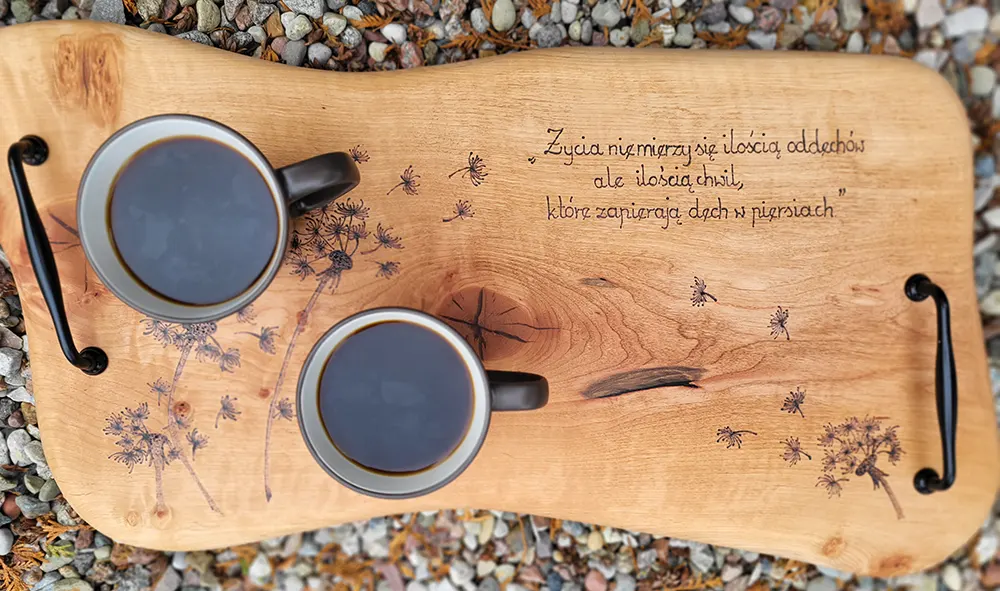 „Życia nie mierzy się ilością oddechów
ale ilością chwil,
które zapierają dech w piersiach”